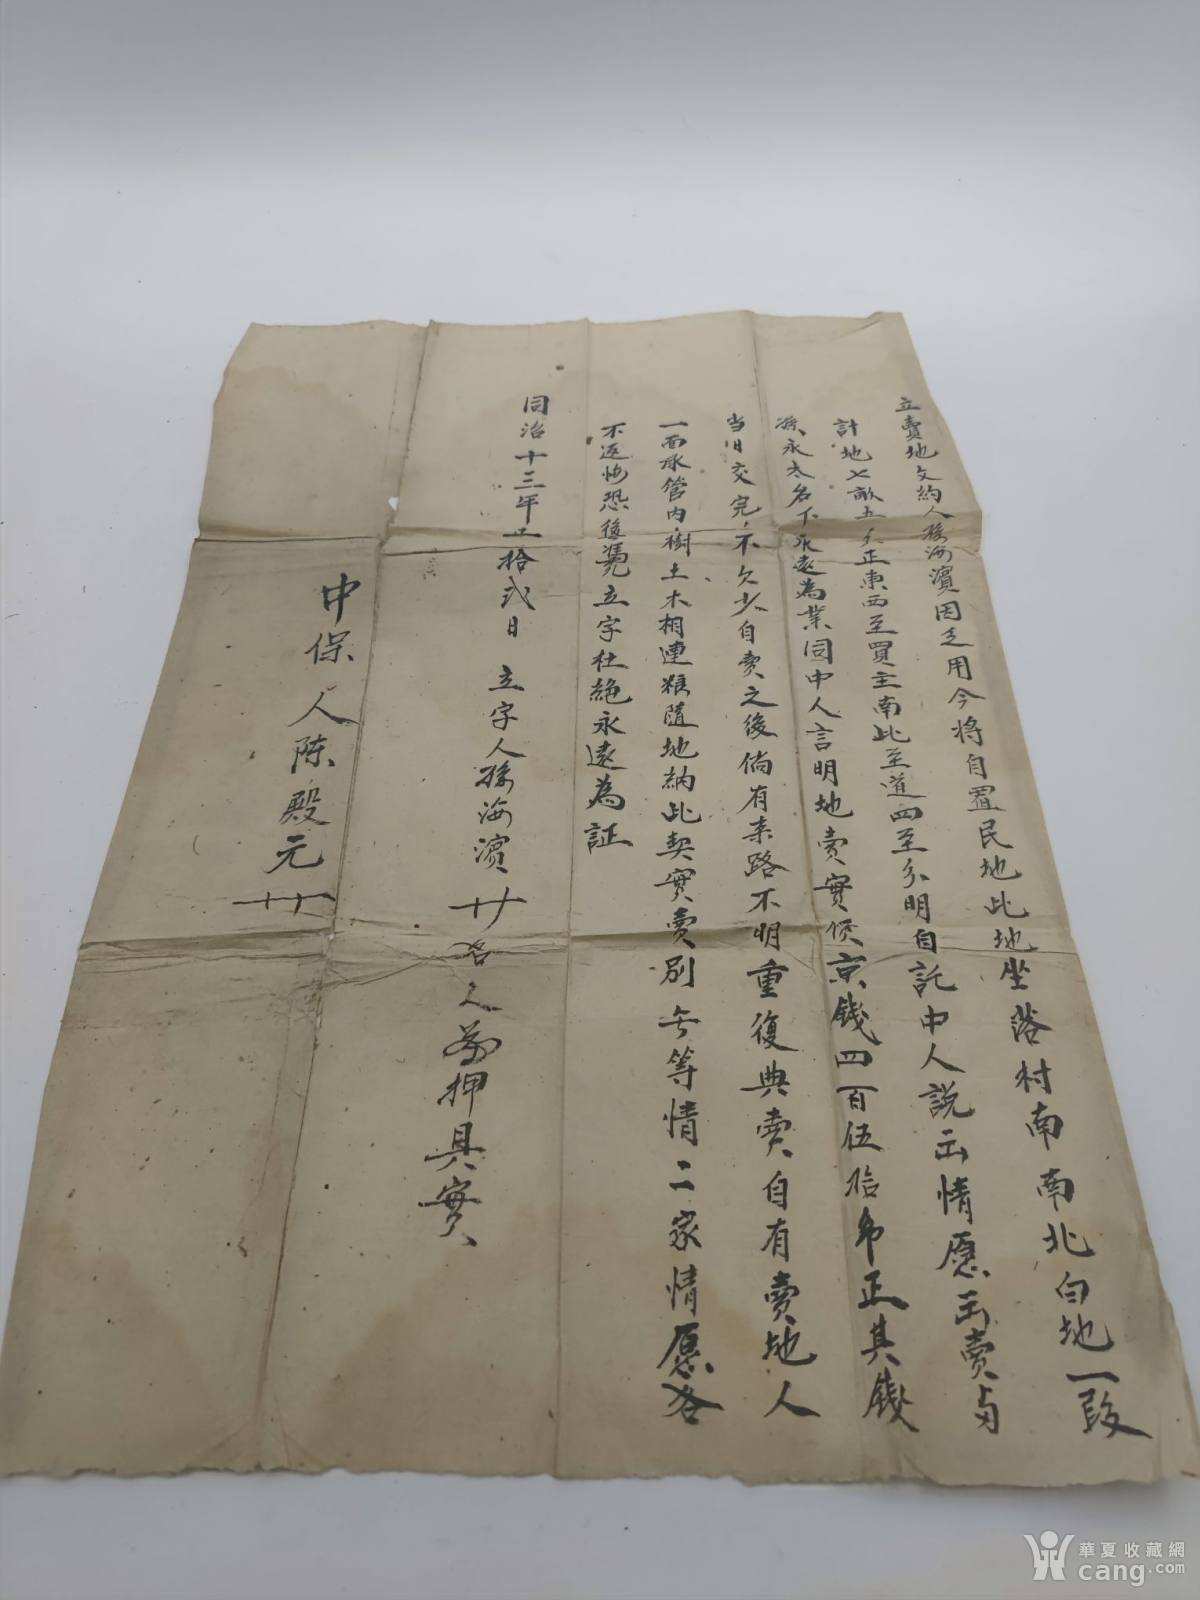 立賣地文約人孫海濱因乏用今將自置民地此地坐落村南南北白地一段
計地七畝五分正東西至買主南北至道四至分明自託中人説出情愿出賣与
孫永太名下永遠為業同中人言明地賣實價京錢四百伍拾吊正其錢
当日交完不欠少自賣之後倘有来路不明重復典賣自有賣地人
一面承管内樹土木相連粮隨地納此契實賣別无等情二家情愿各
不返悔恐後憑立字杜絶永遠為証
同治十三年正拾弍日 立字人孫海濱 十 各人 押具實
中保人陳殿元 十
華夏收藏網
cang.com